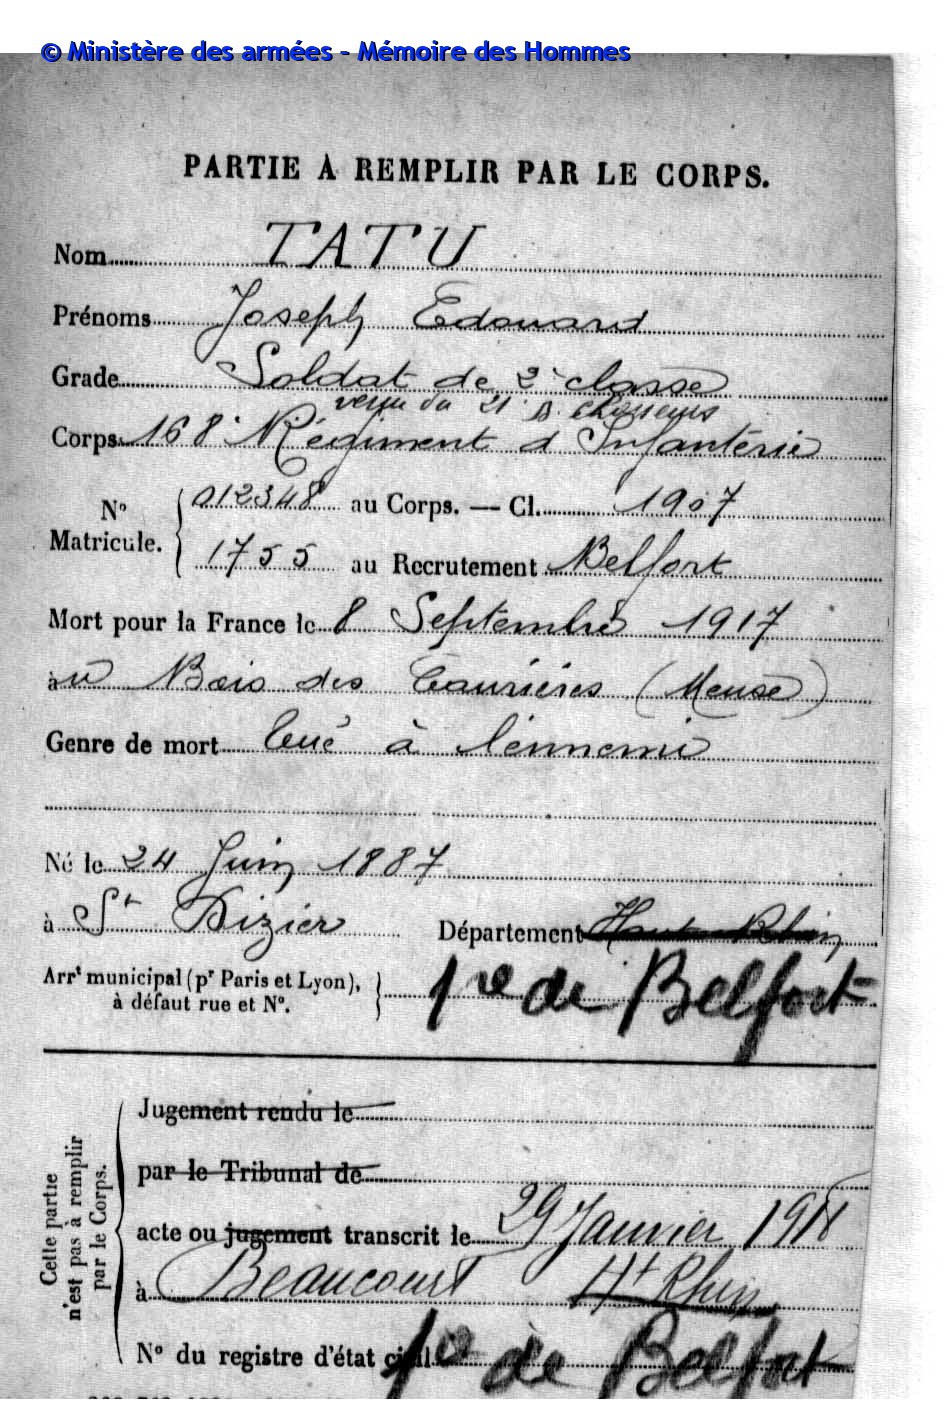 © Ministère des armées - Mémoire des Hommes
PARTIE À REMPLIR PAR LE CORPS.
Nom TATU
Prénoms Joseph Edouard
Grade Soldat de 2e classe
venu du 21 B. Chasseurs
Corps 168e Régiment d'Infanterie
No Matricule. 012348 au Corps. — Cl. 1907
1755 au Recrutement Belfort
Mort pour la France le 8 Septembre 1917
à u Bois des Caurières (Meuse)
Genre de mort Tué à l'ennemi
Né le 24 Juin 1887
à St Dizier Département Haut Rhin
Arrt municipal (pr Paris et Lyon), à défaut rue et No. Tre de Belfort
Cette partie n'est pas à remplir par le Corps.
Jugement rendu le
par le Tribunal de
acte ou jugement transcrit le 29 Janvier 1918
à Beaucourt Ht Rhin
No du registre d'état civil Tre de Belfort